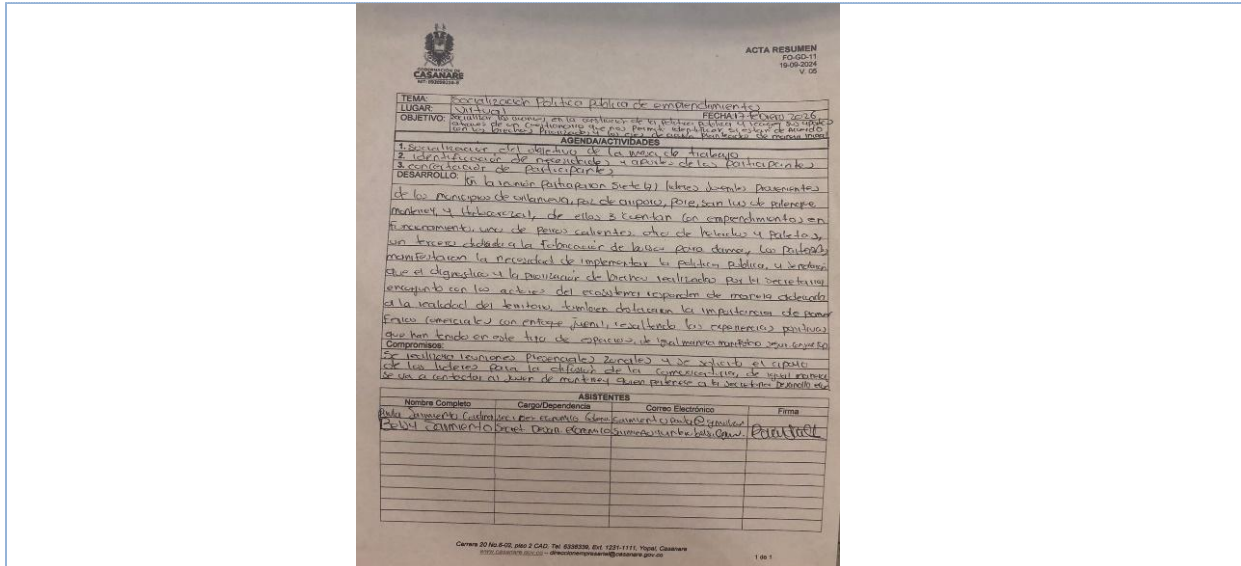 GOBERNACIÓN DE
CASANARE
ACTA RESUMEN
FO-GD-11
19-09-2024
V. 05
TEMA: Socialización Política pública de emprendimientos
LUGAR: Virtual FECHA 17 Febrero 2026
OBJETIVO: Socializar los avances en la construcción de la Política Pública
a través de un cuestionario que nos permita identificar si están de acuerdo
con las brechas priorizadas y los ejes de acción planteados de manera inicial
AGENDA/ACTIVIDADES
1. Socialización del objetivo de la mesa de trabajo
2. identificación de necesidades y aportes de los participantes
3. concertación de participantes
DESARROLLO: En la reunión participaron siete (7) líderes Juveniles provenientes
de los municipios de villanueva, paz de ariporo, pore, san luis de palenque
monterrey, y , de ellos 3 cuentan con emprendimientos en
funcionamiento, uno de perros calientes, otro de helados y paletas,
un tercero dedicado a la fabricación de bolsos para damas, los
manifestaron la necesidad de implementar la política pública, y señalaron
que el diagnostico y la priorización de brechas realizados por la secretaria
en conjunto con los actores del ecosistema responden de manera adecuada
a la realidad del territorio, tambien destacaron la importancia de
comerciales con enfoque juvenil, resaltando las experiencias positivas
que han tenido en este tipo de espacios, de igual manera manifestó
Compromisos:
Se realizara reuniones Presenciales zonales y se solicito el apoyo
de los lideres para la difusión de la convocatoria, de igual manera
se va a contactar al Joven de monterrey quien pertenece a la secretaria Desarrollo
ASISTENTES
Nombre Completo Cargo/Dependencia Correo Electrónico Firma
Sarmiento
Sarmiento Secret. Desarr. Económico
Carrera 20 No.8-02, piso 2 CAD, Tel. 6336339, Ext. 1231-1111, Yopal, Casanare
www.casanare.gov.co – direccionempresarial@casanare.gov.co
1 de 1